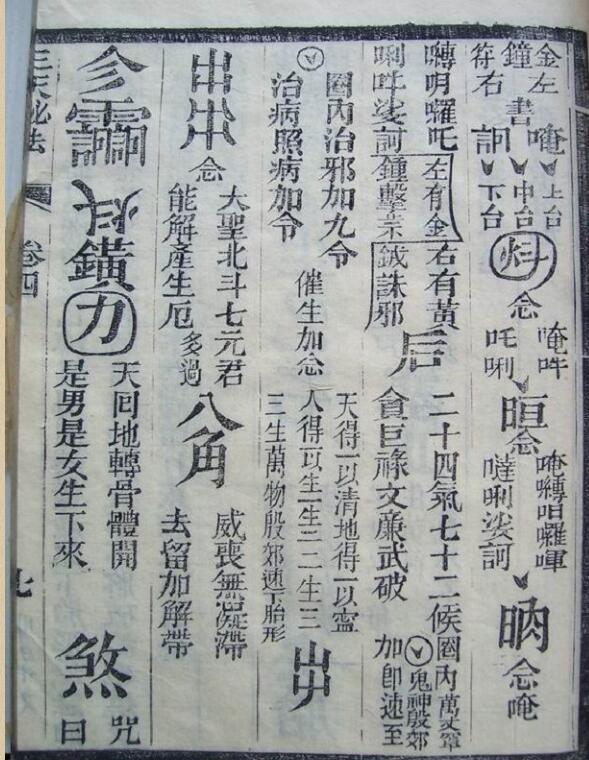 金左鐘右符書
唵 上台
中台
訶 下台
念
唵吽吒唎
晅
念
唵囀呾囉㖷噠唎娑訶
昞
念唵
囀明囉吒唎吽娑訶
左有金鐘擊祟
右有黃鉞誅邪
后
二十四氣七十二候
貪巨祿文廉武破
圈內萬丈罩
鬼神殷郊
加即速至
圈內治邪加九令
治病照病加令
催生加念
天得一以清地得一以靈
人得一以生一生二二生三
三生萬物殷郊速下胎形
出
念
大聖北斗七元君
能解產生厄
多過
八角
威喪無凝滯
去留加解帶
鐄
力
天回地轉骨體開
是男是女生下來
煞
咒曰
三天祕法
卷四